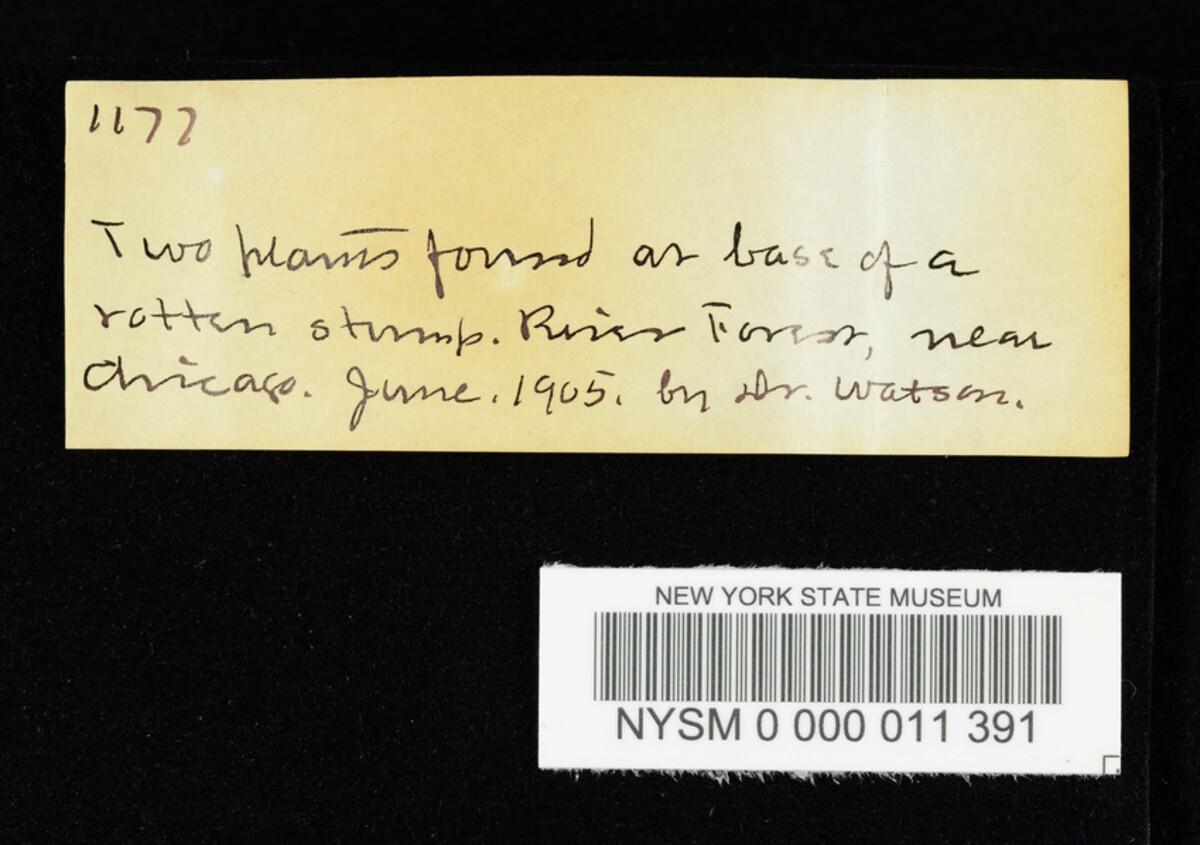 1177
Two plants found at base of a
rotten stump. River Forest, near
Chicago. June. 1905. by Dr. Watson.
NEW YORK STATE MUSEUM
NYSM 0 000 011 391